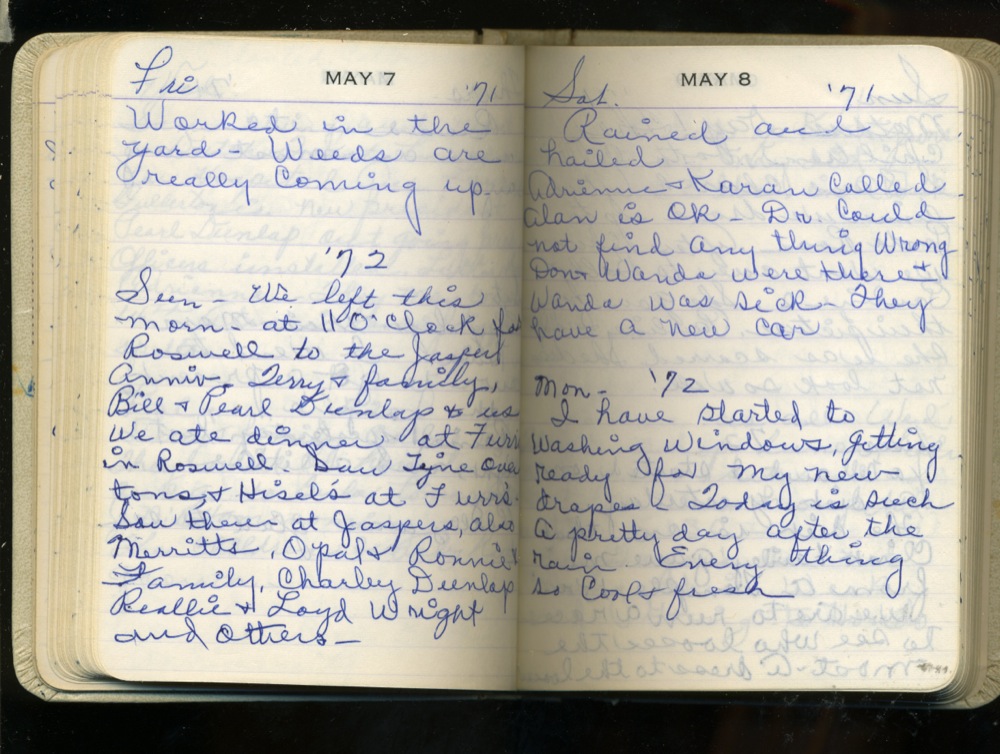 Fri MAY 7 '71
Worked in the
yard - Weeds are
really coming up.
'72
Sun - We left this
morn - at 11 O'Clock for
Roswell to the Jasper
Anniv. Terry & family,
Bill & Pearl Dunlap & us
We ate dinner at Furrs
in Roswell. Saw Tyne Over
tons, & Hisel's at Furrs.
Saw them at Jaspers, also
Merritts, Opal & Ronnie &
Family, Charley Dunlap
& Loyd Wright
and Others -
Sat. MAY 8 '71
Rained and
hailed
Adrienne & Karan Called
Alan is OK - Dr. Could
not find any thing Wrong
Don & Wanda were there &
Wanda was sick - They
have a new car
Mon - '72
I have started to
Washing windows, getting
ready for my new
drapes - Today is such
a pretty day after the
rain. Every thing
so Cool & fresh